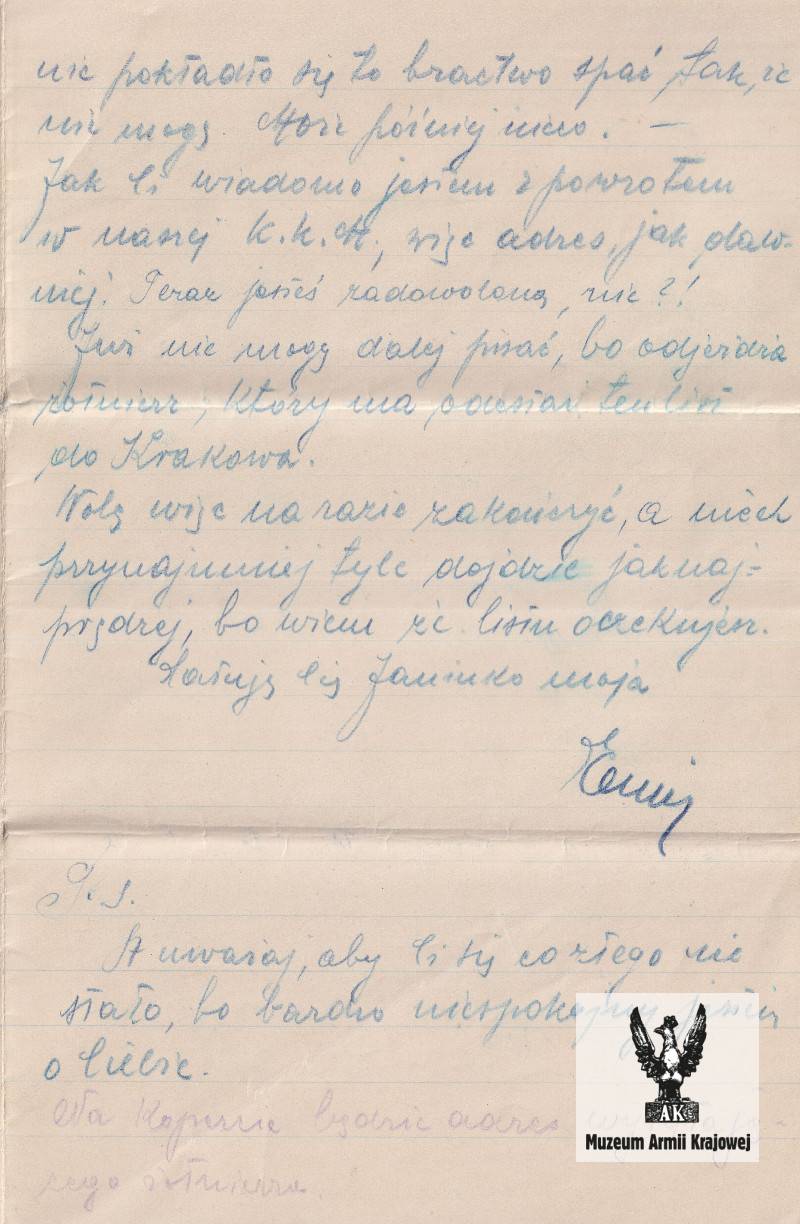 nie pokładło się to bractwo spać tak, że
nie mogę. Może później nieco. —
Jak Ci wiadomo jestem z powrotem
w naszej K.K.M., więc adres, jak daw-
niej. Teraz jesteś zadowolona, nie?!
Już nie mogę dalej pisać, bo odjeżdża
żołnierz, który ma odesłać ten list
do Krakowa.
Wolę więc na razie zakończyć, a niech
przynajmniej tyle dojdzie jaknaj-
prędzej, bo wiem że listu oczekujesz.
Całuję Cię Janinko moja
P.S.
A uważaj, aby Ci się co złego nie
stało, bo bardzo niespokojny jestem
o Ciebie.
Na kopercie będzie adres
cego żołnierza.
AK
Muzeum Armii Krajowej